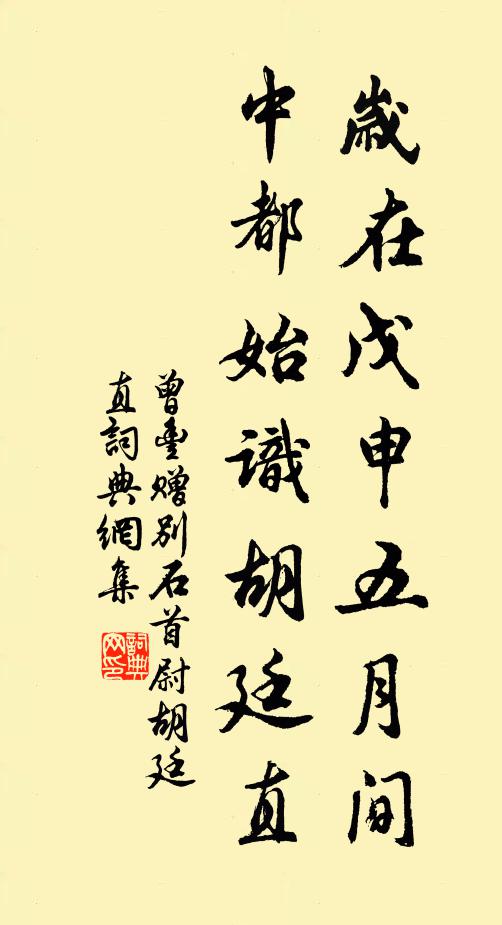 歲在戊申五月間
中都始識胡廷直
曾豐贈別石首尉胡廷
直詞典網集
詞典
网印